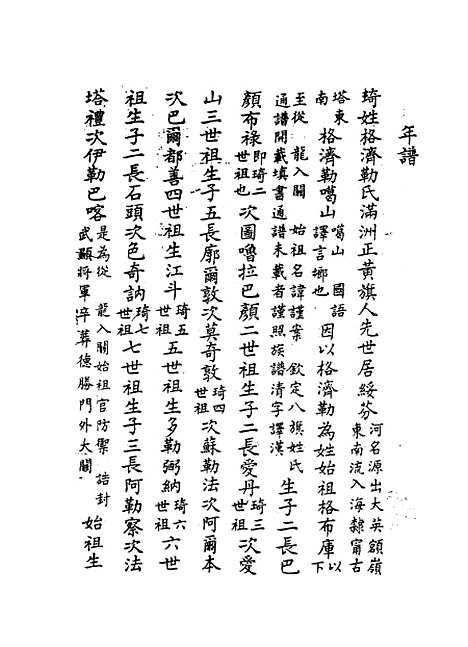 年譜
琦姓格濟勒氏滿洲正黃旗人先世居綏芬河名源出大英額嶺東南流入海隸甯古
塔東南格濟勒噶山噶山國語譯言鄉也因以格濟勒為姓始祖格布庫以下
至從 龍入關 始祖名諱謹案 欽定八旗姓氏通譜開載填書通譜未載者謹照族譜清字譯漢生子二長巴
顏布祿即琦二世祖也次圖嚕拉巴顏二世祖生子二長愛丹琦三世祖次愛
山三世祖生子五長廓爾敦次莫奇敦琦四世祖次蘇勒法次阿爾本
次巴爾都善四世祖生江斗琦五世祖五世祖生多勒弼納琦六世祖六世
祖生子二長石頭次色奇訥琦七世祖七世祖生子三長阿勒察次法
塔禮次伊勒巴喀是為從 龍入關始祖官防禦 誥封武顯將軍卒葬德勝門外大關 始祖生